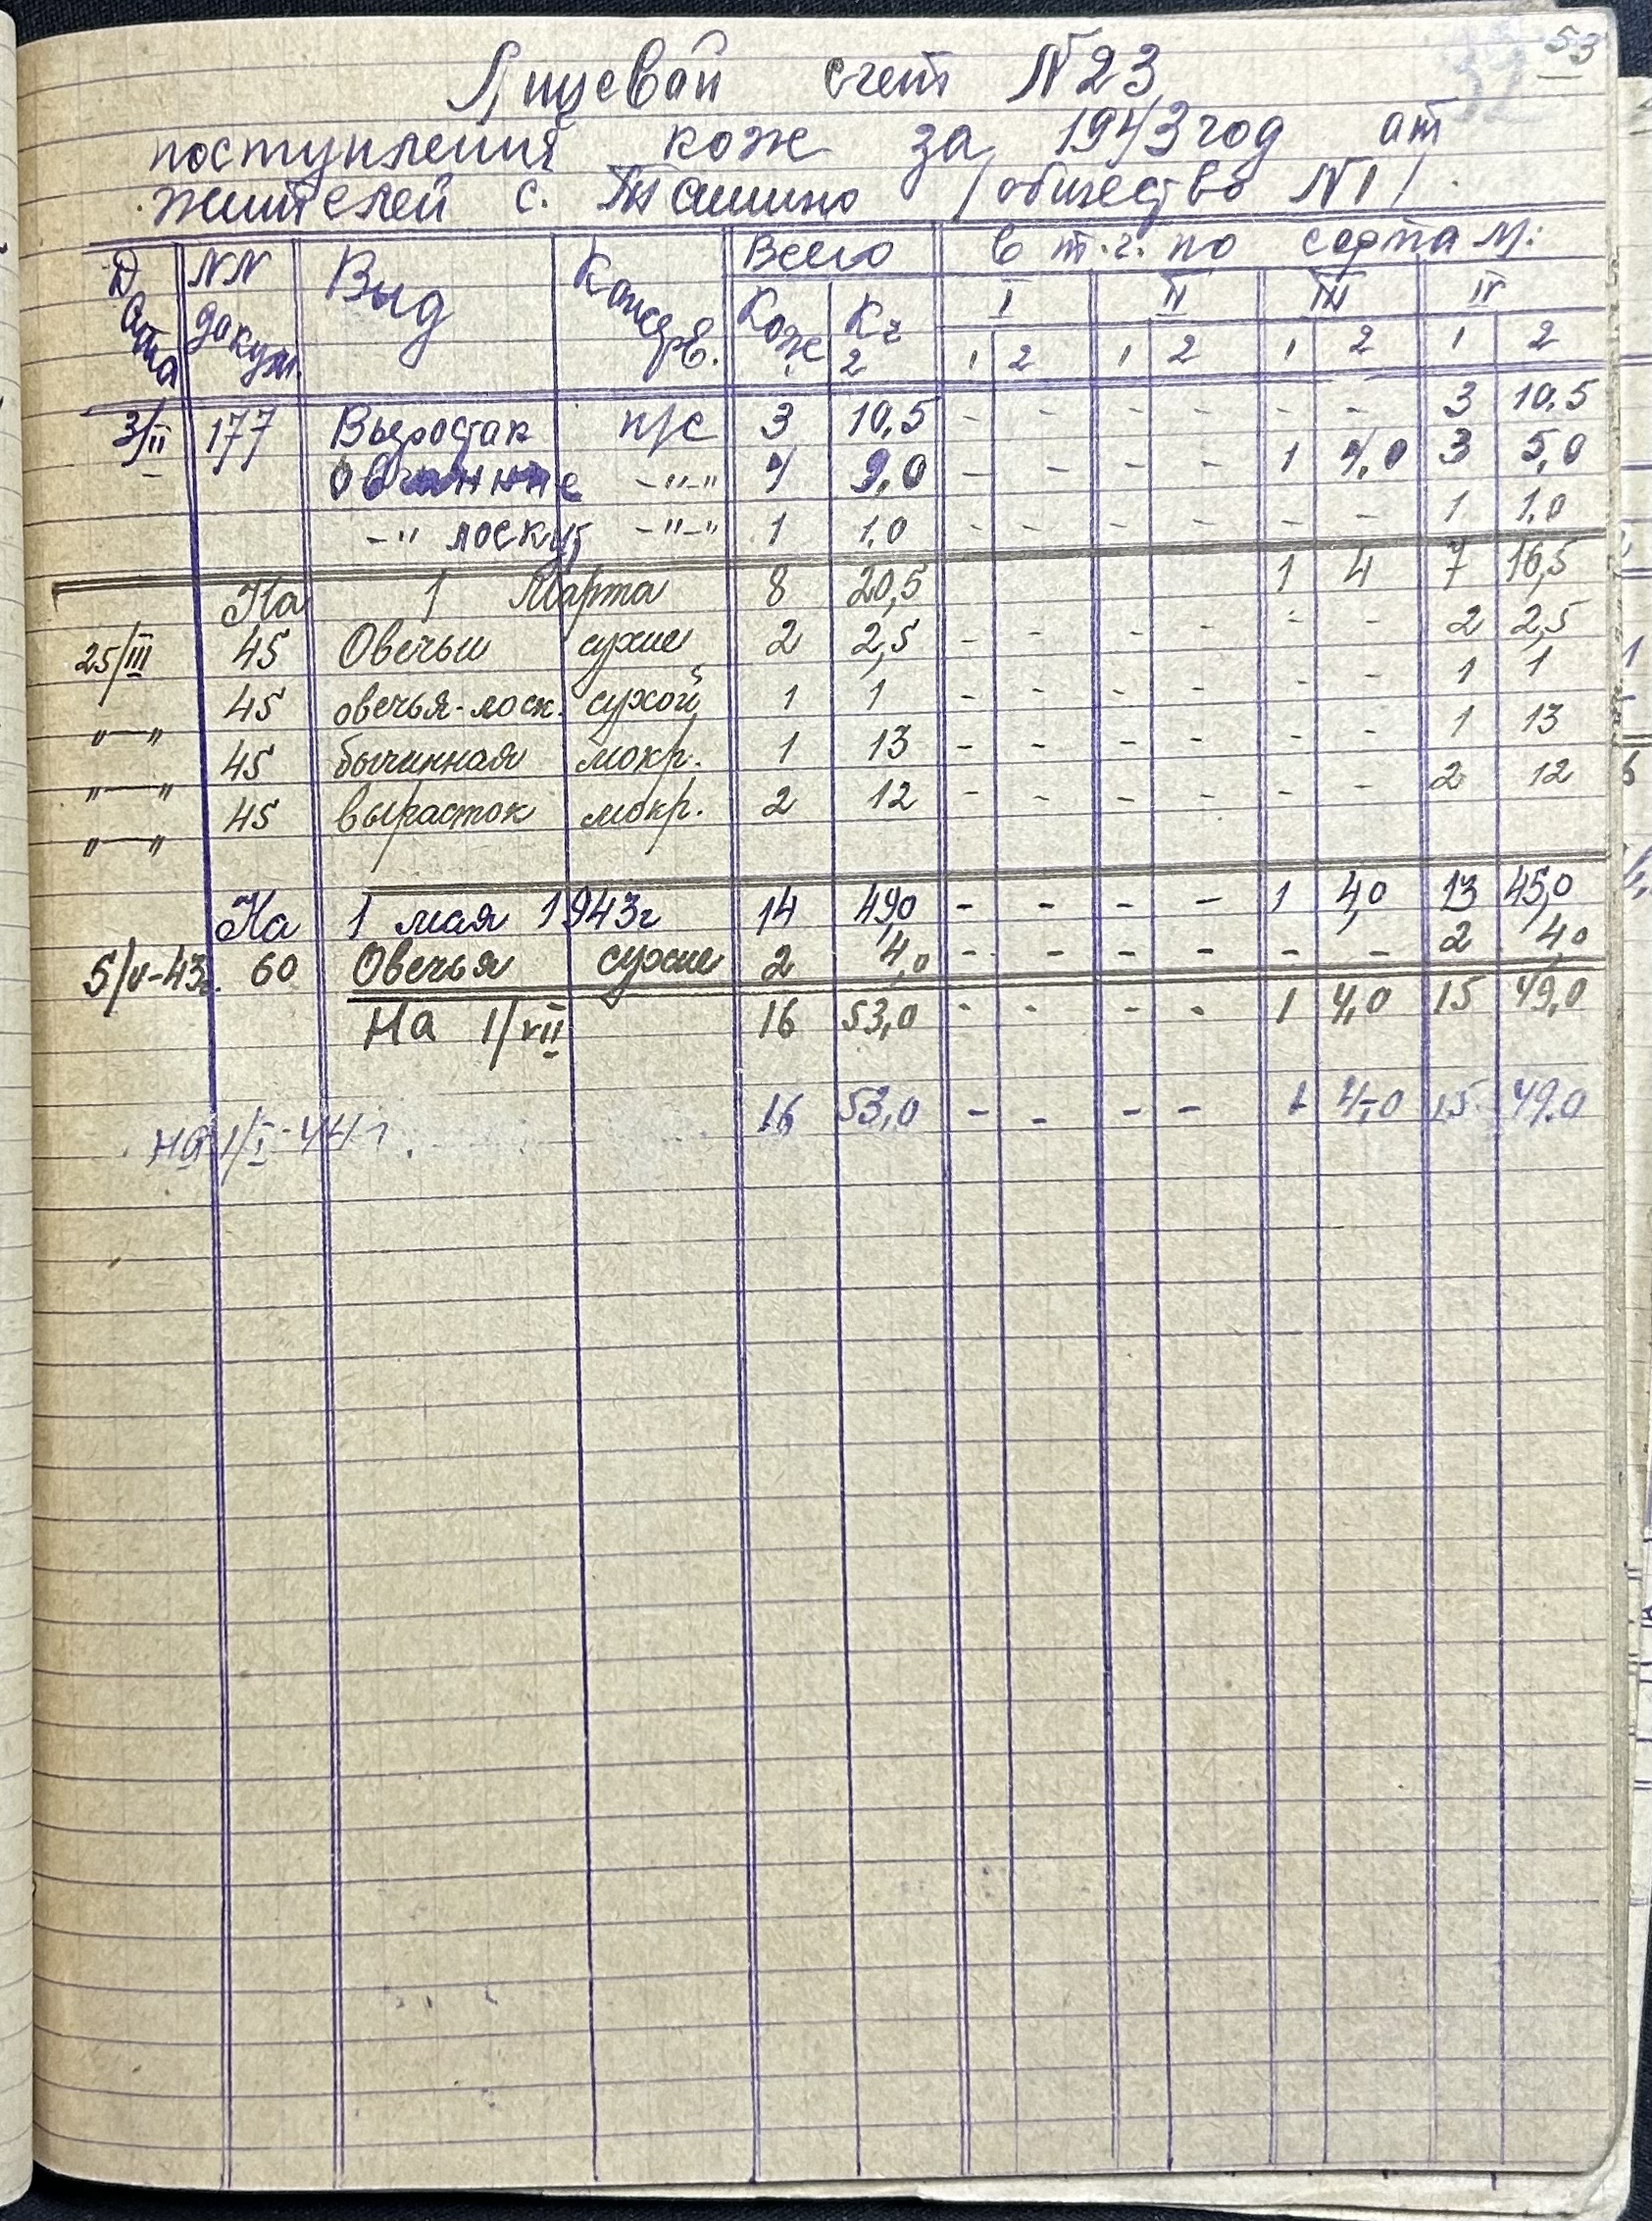 53
Лицевой счет N23
поступления кож за 1943 год от
жителей с. Ташино /общество N1/.
Дата NN докум. Вид Консерв. Всего в т.ч. по сортам:
Кож Кг I II III IV
1 2 1 2 1 2 1 2 1 2
3/II 177 Выросток п/с 3 10,5 - - - - - - 3 10.5
- Овчинные -"-" 4 9,0 - - - - 1 4,0 3 5,0
-" лоскут -"-" 1 1,0 - - - - - - 1 1,0
На 1 Марта 8 20,5 1 4 7 16,5
25/III 45 Овечьи сухие 2 2,5 - - - - - - 2 2,5
"—" 45 овечья-лоск. сухой 1 1 - - - - - - 1 1
"—" 45 бычинная мокр. 1 13 - - - - - - 1 13
"—" 45 выросток мокр. 2 12 - - - - - - 2 12
На 1 мая 1943г 14 49,0 - - - - 1 4,0 13 45,0
5/V-43г. 60 Овечья сухие 2 4,0 - - - - - - 2 4,0
На 1/VII 16 53,0 - - - - 1 4,0 15 49,0
на 1/I-44г. 16 53,0 - - - - 1 4,0 15 49.0